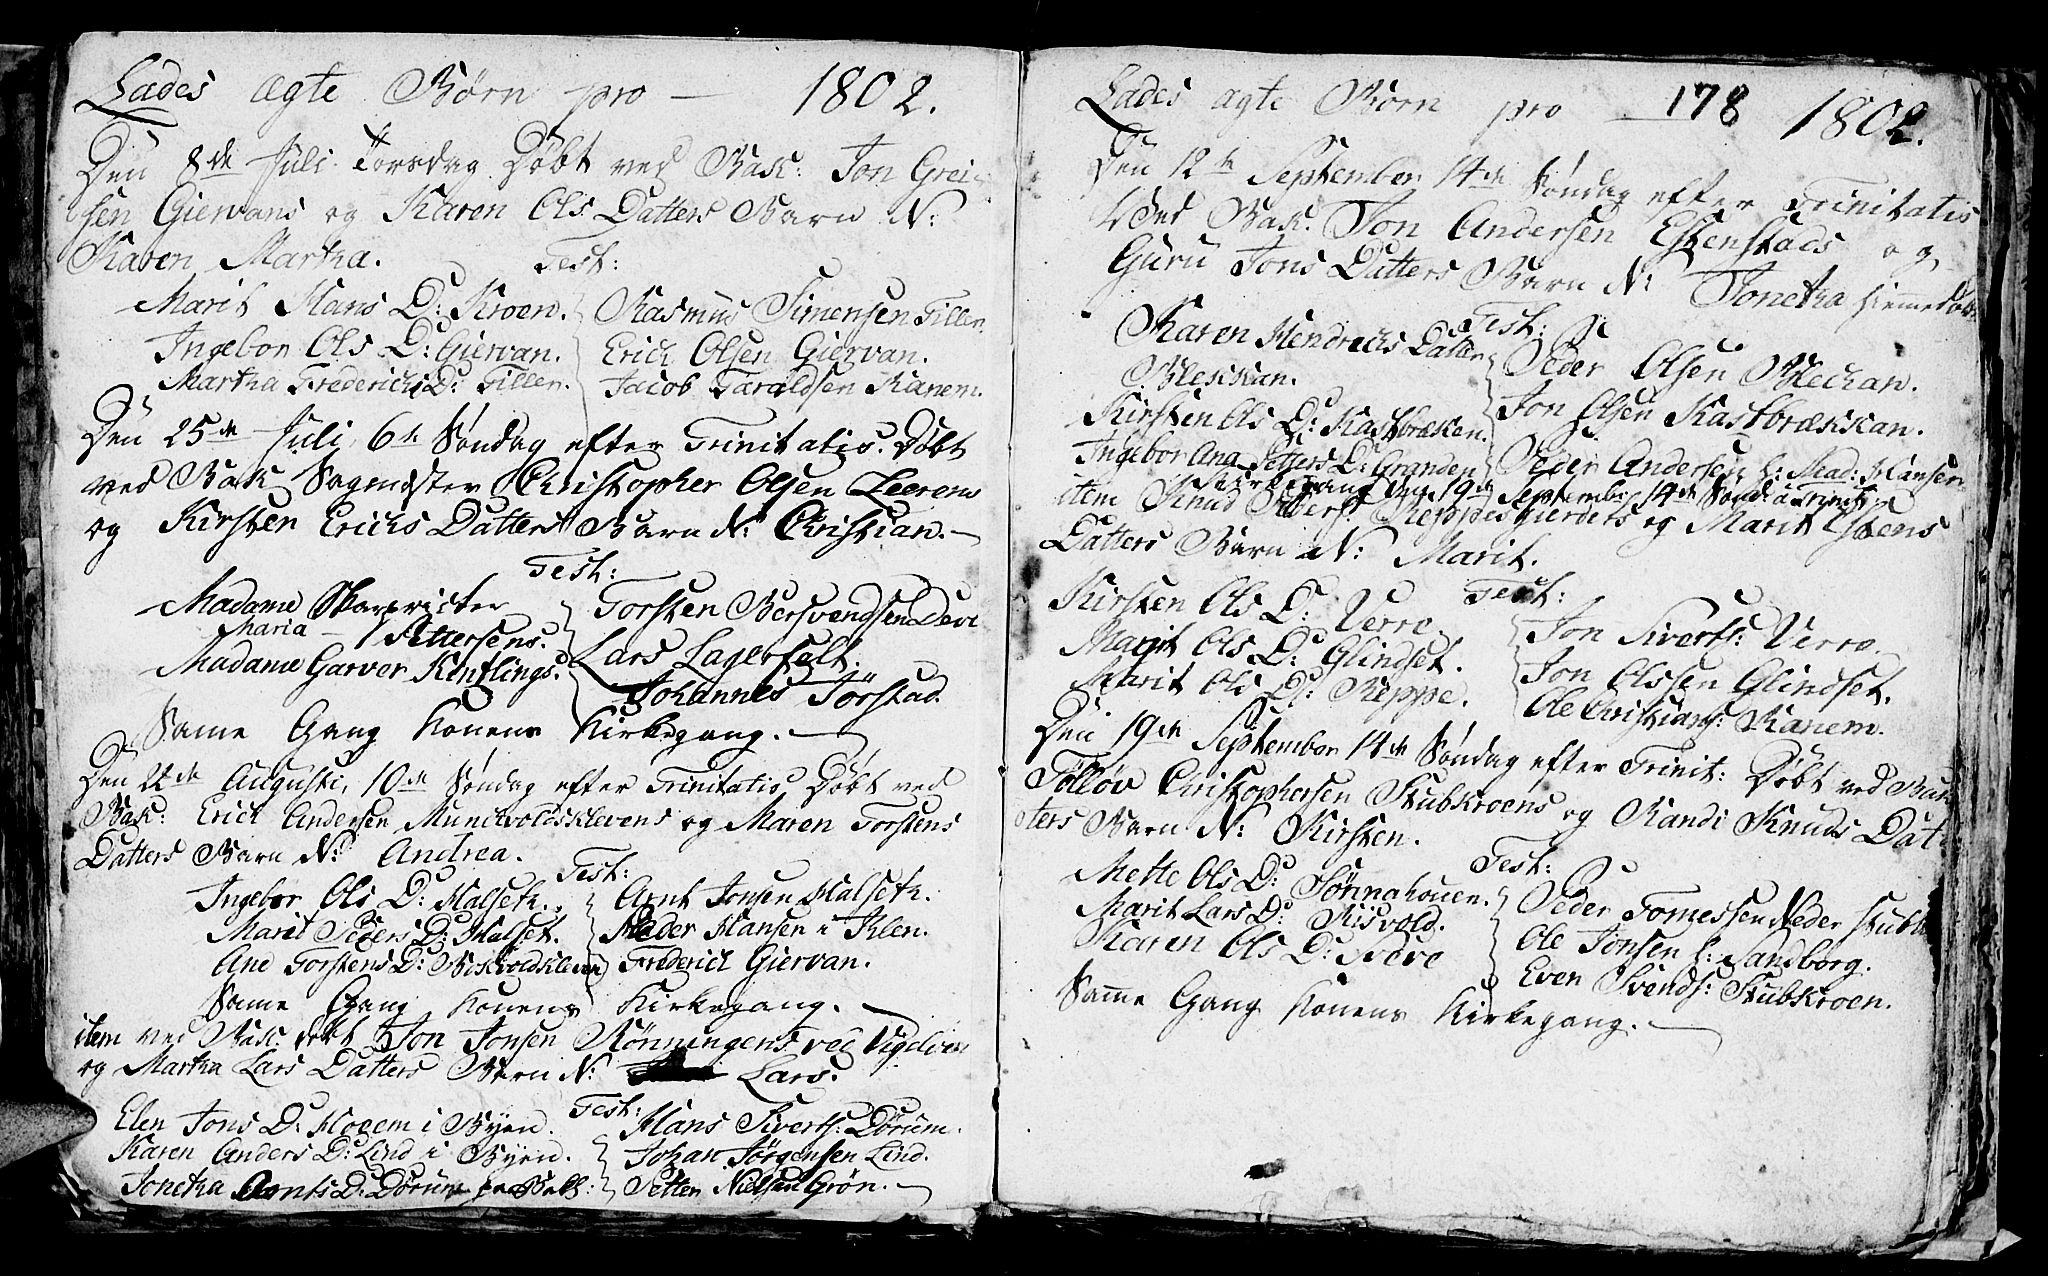 Lades ægte Børn pro — 1802.
Den 8de Juli Torsdag Døbt ved Bak: Jon Grei-
sen Giervans og Karen Ols Datters Barn N:
Karen Martha.
Test:
Marit Hans D: Kroen. Rasmus Simensen Tiller.
Ingebor Ols D: Giervan. Erich Olsen Giervan.
Martha Frederichs D: Tiller. Jacob Taraldsen Ranem.
Den 25de Juli, 6te Søndag efter Trinitatis. Døbt
ved Bak Sagmester Christopher Olsen Leerens
og Kirsten Erichs Datters Barn N: Christian. —
Test:
Madame Skarprister Torsten Bersvendsen Deve
Maria — Pettersens. Lars Lagerfelt.
Madame Garver Johannes Törstad.
Same Gang Konens Kirkegang. —
Den 22de Augusti, 10de Søndag efter Trinitatis Døbt ved
Bak: Erich Andersen Munchvoldsklevens og Maren Torstens
Datters Barn N: Andrea.
Test:
Ingebor Ols D: Halseth. Arnt Jonsen Halseth.
Marit Peders D: Halset. Peder Hansen i Ilen.
Ane Torstens D: Frederich Giervan.
Same Gang Konens Kirkegang. —
item ved Bak: døbt Jon Jonsen Rönningens ved
og Martha Lars Datters Barn N: Lars.
Test:
Elen Jons D: Moeem i Byen. Hans Sivertsˢ: Dørum.
Karen Anders D: Lind i Byen. Johan Jörgensen Lind.
Jonetha Arnts D: Dörum Petter Nielsen Grön. —
Lades ægte Børn pro — 178 1802.
Den 12te September 14de Søndag efter Trinitatis
Ved Bak. Jon Andersen Estenstads og
Guru Jons Datters Barn N: Jonetha hiemmedøbt
Test:
Karen Hendrichs Datter Peder Olsen Blechan.
Blekkan. Jon Olsen Kastbrækkan.
Kirsten Ols D: Kastbrækken. Peder Andersen
Ingebor Ana Petters D: Granden
Kirkegang Den 19de September 14de Sønd:
item Knud og Marit Estens
Datters Barn N: Marit.
Test:
Kirsten Ols D: Verre. Jon Siverts: Verre.
Marit Ols D: Glindset. Jon Olssen Glindset.
Marit Ols D: Reppe. Ole Christians: Ranem.
Den 19de September 14de Søndag efter Trinit: Døbt ved Bak
Tölløv Christophersen Stubkroens og Randi Knuds Dat-
ters Barn N: Kirsten.
Test:
Mette Ols D: Sönnahouen. Peder Tomessen Neder Stubb
Marit Lars D: Risvold. Ole Jonsen H: Sandborg.
Karen Ols D: Even Svends: Stubkroen.
Same Gang Konens Kirkegang. —